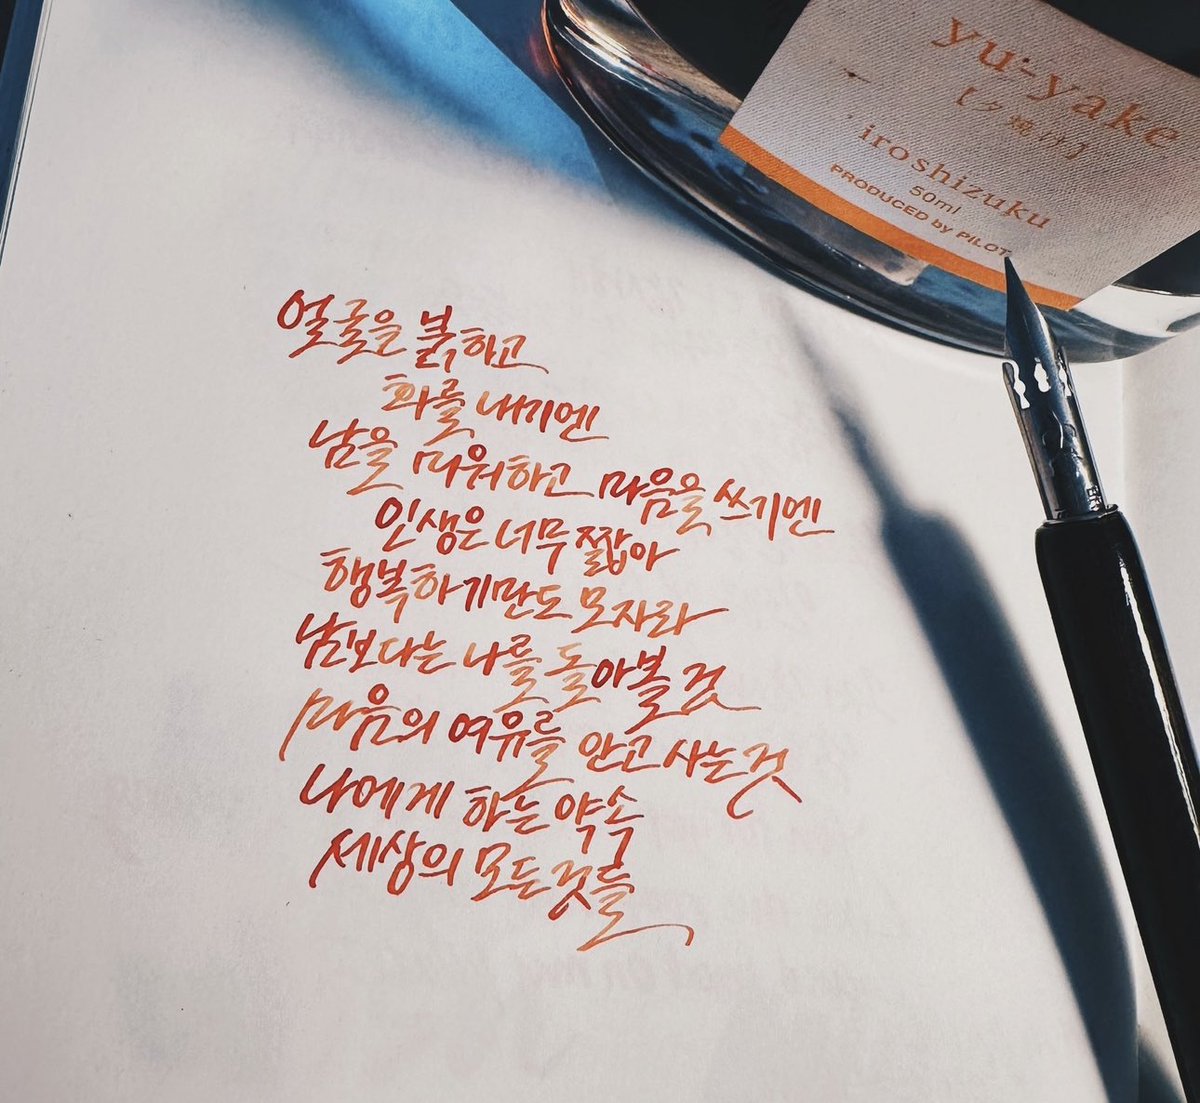 yu-yake
【夕焼け】
iroshizuku
50ml
PRODUCED by PILOT
얼굴을 붉히고
화를 내기엔
남을 미워하고 마음을 쓰기엔
인생은 너무 짧아
행복하기만도 모자라
남보다는 나를 돌아볼 것
마음의 여유를 안고 사는 것
나에게 하는 약속
세상의 모든 것들